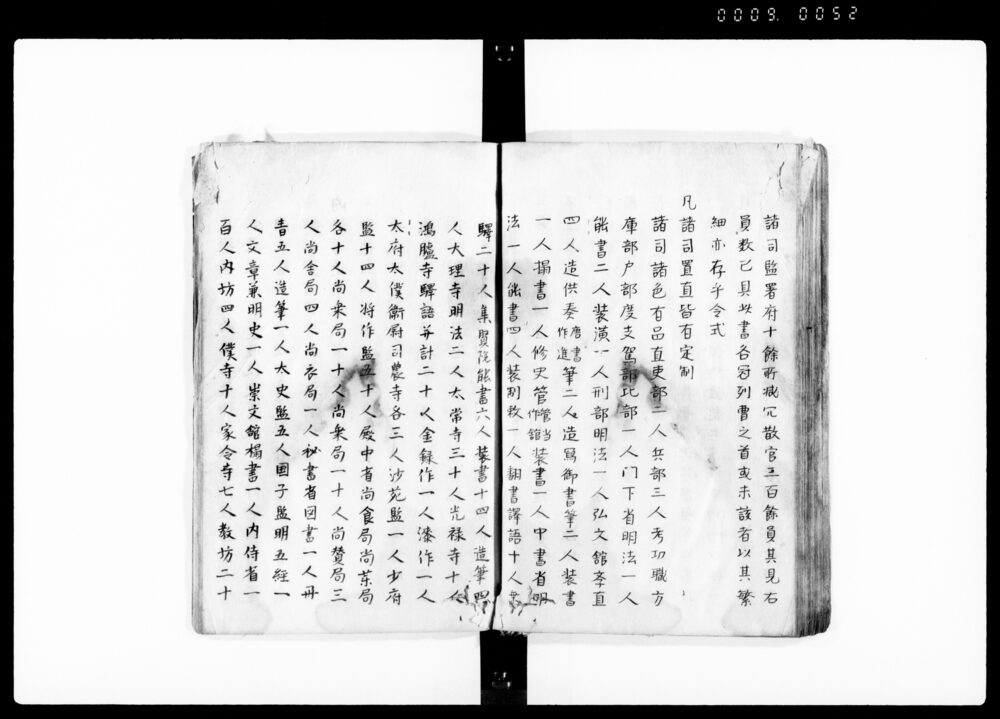 0009. 0052
諸司監署府十餘所減冗散官三百餘員其見右
員数已具以書各冠列曹之首或未該者以其繁
細亦存乎令式
凡諸司置直皆有定制
諸司諸色有品直吏部二人兵部三人考功職方
庫部户部度支駕部比部一人门下省明法一人
能書二人装潢一人刑部明法一人弘文舘孝直
四人造供奏唐書作進筆二人造写御書筆二人装書
一人搨書一人修史管管当作舘装書一人中書省明
法一人能書四人装制敕一人翻書譯語十人乘
驛二十人集賢院能書六人装書十四人造筆四
人大理寺明法二人太常寺三十人光禄寺十人
鴻臚寺驛語并計二十人金録作一人漆作一人
太府太僕衛尉司農寺各三人沙苑監一人少府
監十四人将作監五十人殿中省尚食局尚薬局
各十人尚乗局一十人尚乗局一十人尚賛局三
人尚舍局四人尚衣局一人秘書省図書一人丹
青五人造筆一人太史監五人國子監明五經一
人文章兼明史一人崇文舘搨書一人内侍省一
百人内坊四人僕寺十人家令寺七人教坊二十